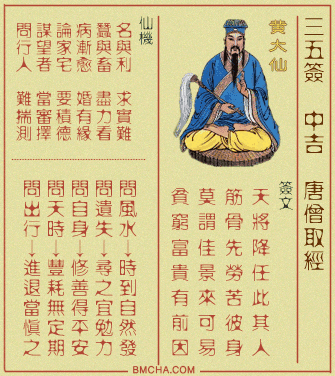 三五簽 中吉 唐僧取經
黃大仙
簽文
天將降任此其人
筋骨先勞苦彼身
莫謂佳景來可易
貧窮富貴有前因
仙機
名與利 求實難
蠶與畜 盡力看
病漸愈 婚有緣
論家宅 要積德
謀望者 當審擇
問行人 難揣測
問風水→時到自然發
問遺失→尋之宜勉力
問自身→修善得平安
問天時→豐耗無定期
問出行→進退當慎之
BMCHA.COM